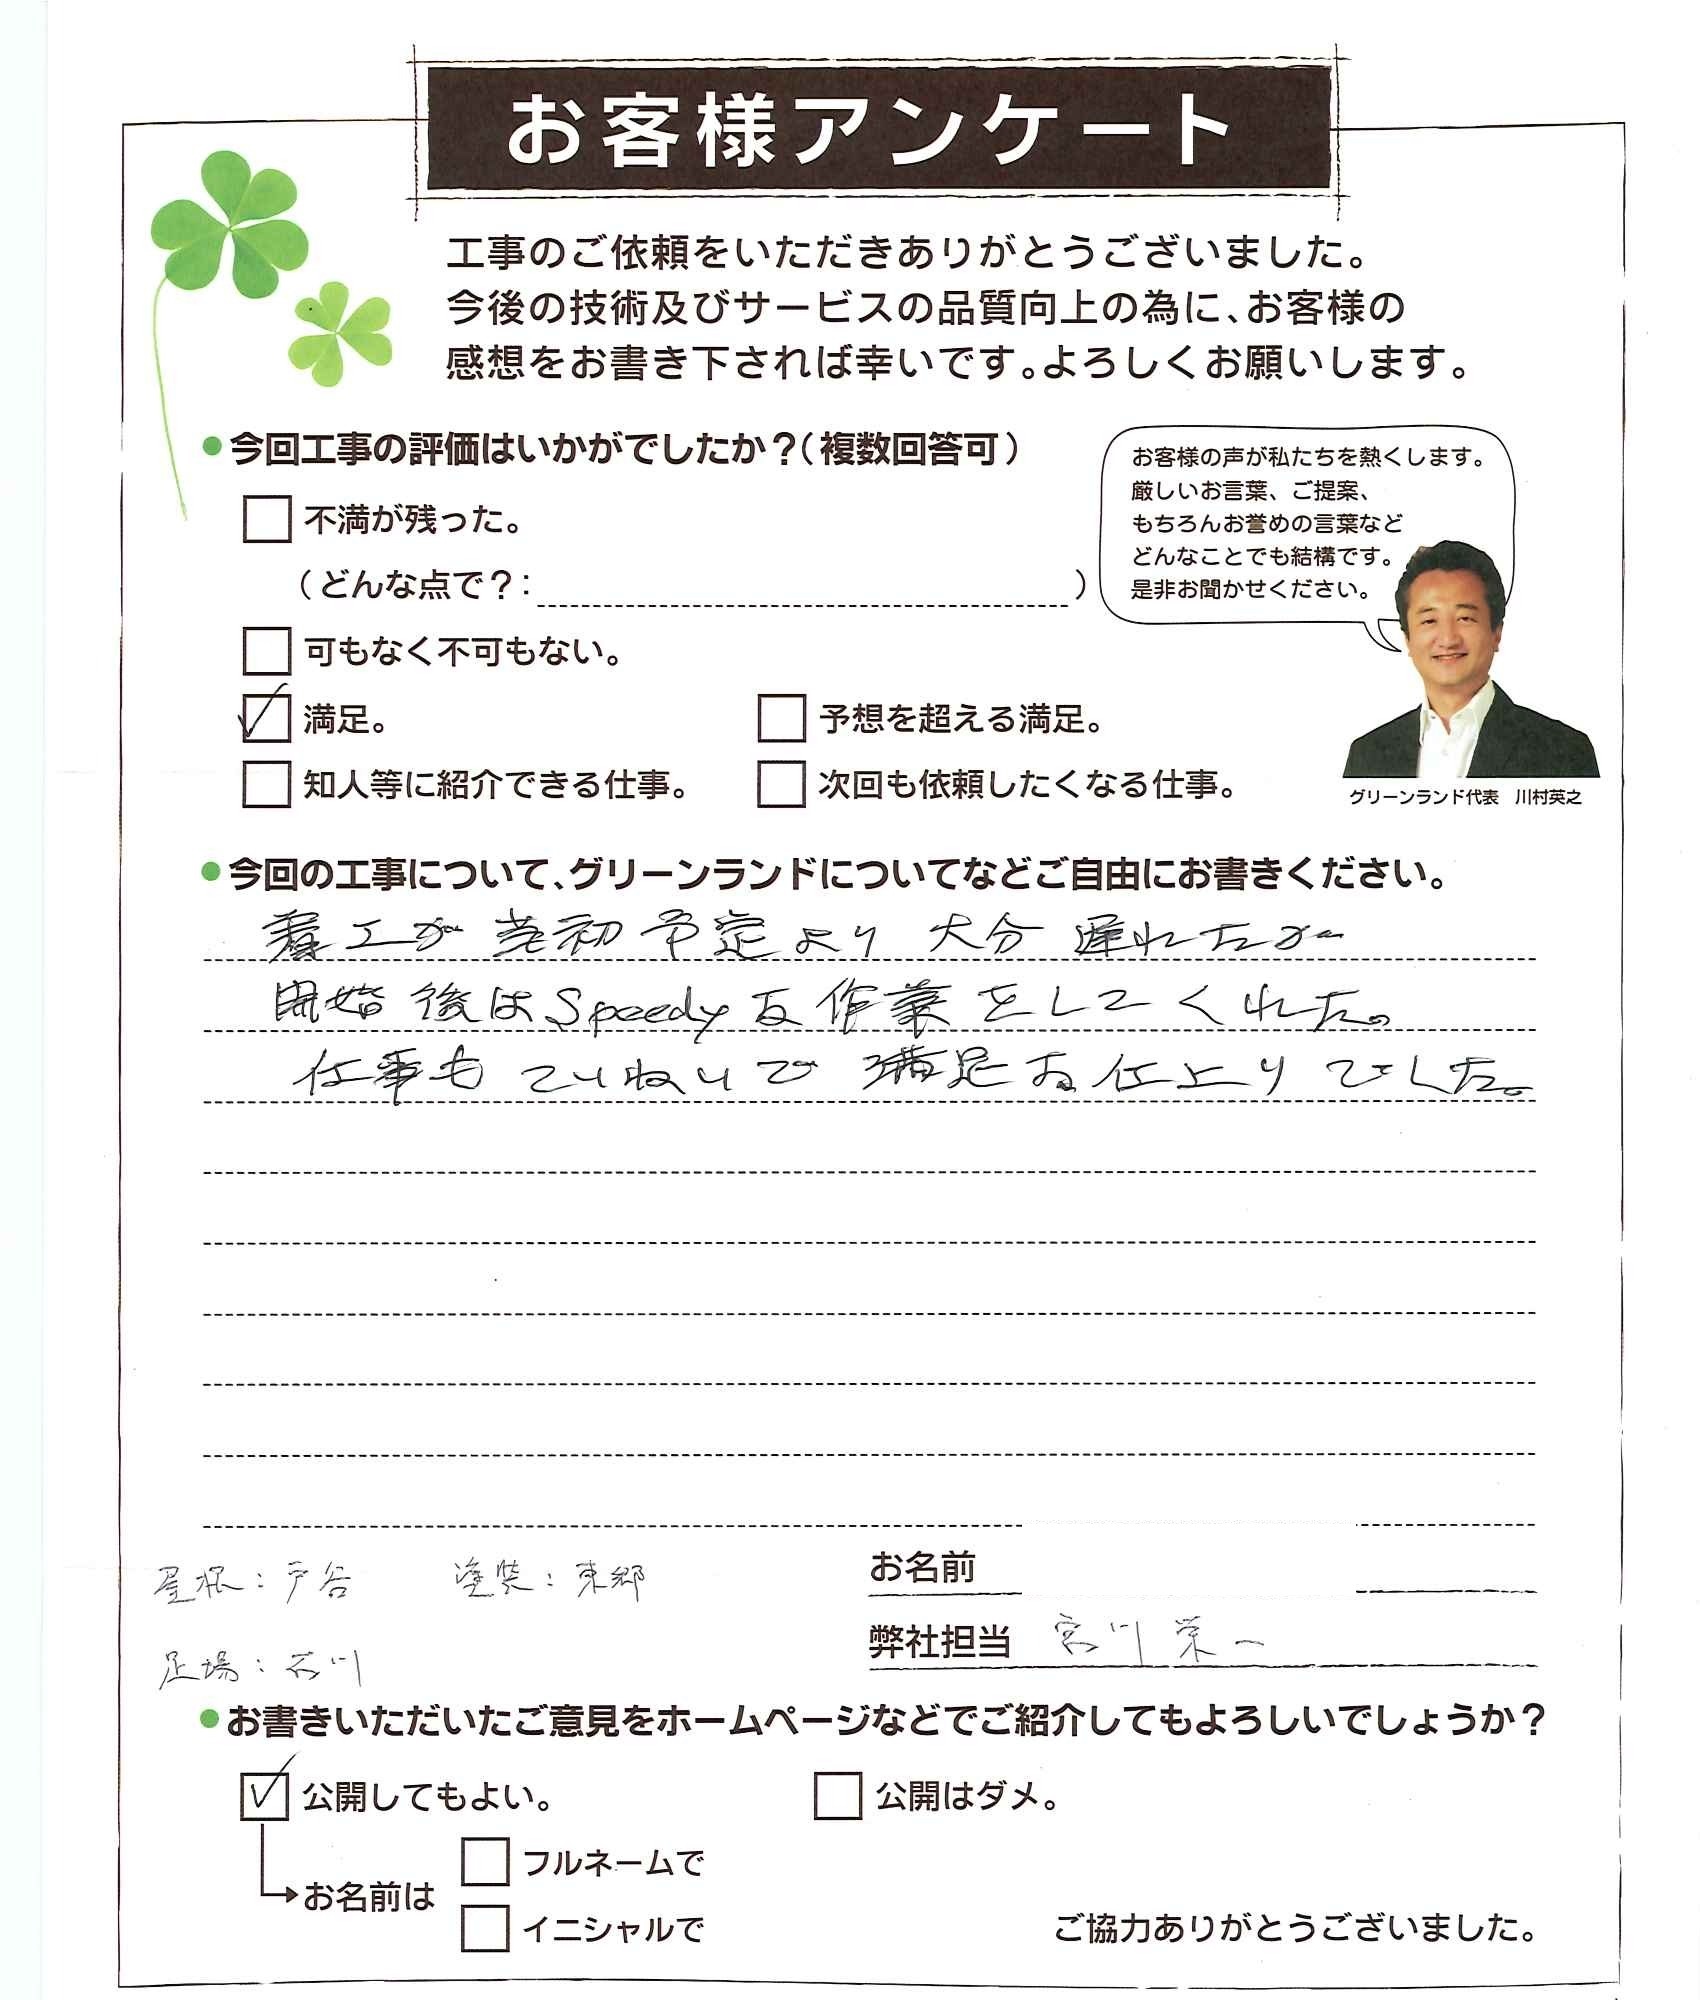 お客様アンケート
工事のご依頼をいただきありがとうございました。
今後の技術及びサービスの品質向上の為に、お客様の
感想をお書き下されば幸いです。よろしくお願いします。
●今回工事の評価はいかがでしたか？(複数回答可)
不満が残った。
(どんな点で？: )
可もなく不可もない。
満足。
予想を超える満足。
知人等に紹介できる仕事。
次回も依頼したくなる仕事。
お客様の声が私たちを熱くします。
厳しいお言葉、ご提案、
もちろんお誉めの言葉など
どんなことでも結構です。
是非お聞かせください。
グリーンランド代表 川村英之
●今回の工事について、グリーンランドについてなどご自由にお書きください。
着工が当初予定より大分遅れたが
開始後はSpeedyな作業をしてくれた。
仕事もていねいで満足な仕上りでした。
屋根:戸谷 塗装:東郷
足場:石川
お名前
弊社担当 宮川栄一
●お書きいただいたご意見をホームページなどでご紹介してもよろしいでしょうか？
公開してもよい。
公開はダメ。
お名前は
フルネームで
イニシャルで
ご協力ありがとうございました。